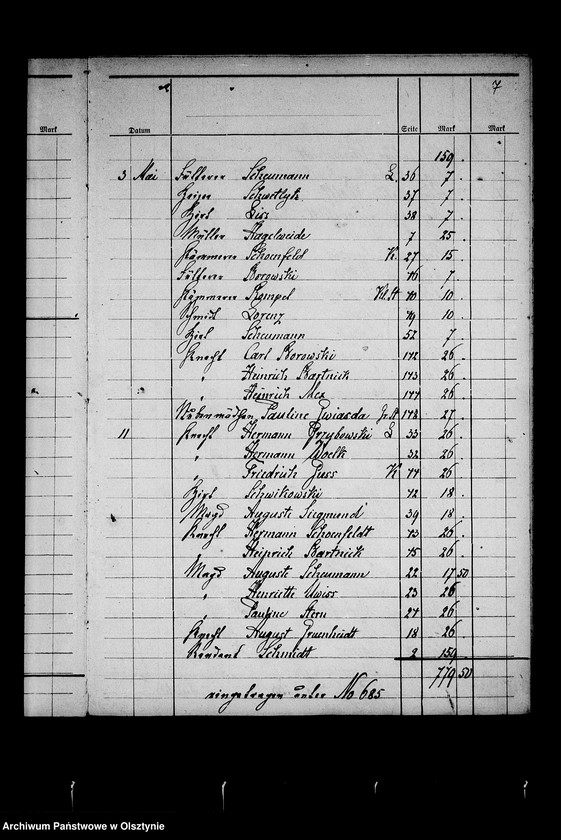 7
Mark Datum Seite Mark Mark
159 .
3 Mai Fütterer Scheumann L. 36 7 .
37 7 .
Hirt Liss 38 7 .
Müller Hagelweide 7 25 .
Kämmerer Schoenfeld K. 27 15 .
Fütterer Borowski 76 7 .
Kämmerer Rompel Kl.H 70 10 .
Schmidt Lorenz 79 10 .
Hirt Scheumann 52 7 .
Knecht Carl Borowski 172 26 .
" Heinrich Bartnick 173 26 .
" Heinrich 177 26 .
Stubenmädchen Pauline Gwiasda 178 27 .
11 Knecht Hermann Przybowski L 33 26 .
" Hermann Woelk 32 26 .
" Friedrich K 77 26 .
Hirt Schwikowski 72 18 .
Magd Auguste Siegmund 39 18 .
Knecht Hermann Schoenfeldt 73 26 .
Heinrich Bartnick 75 26 .
Magd Auguste Scheumann 22 17 50
" Henriette 23 26
" Pauline Stern 27 26 .
Knecht August Gruenheidt 18 26 .
Rendant Schmidt 2 159 .
779 50
eingetragen unter No 685
Archiwum Państwowe w Olsztynie